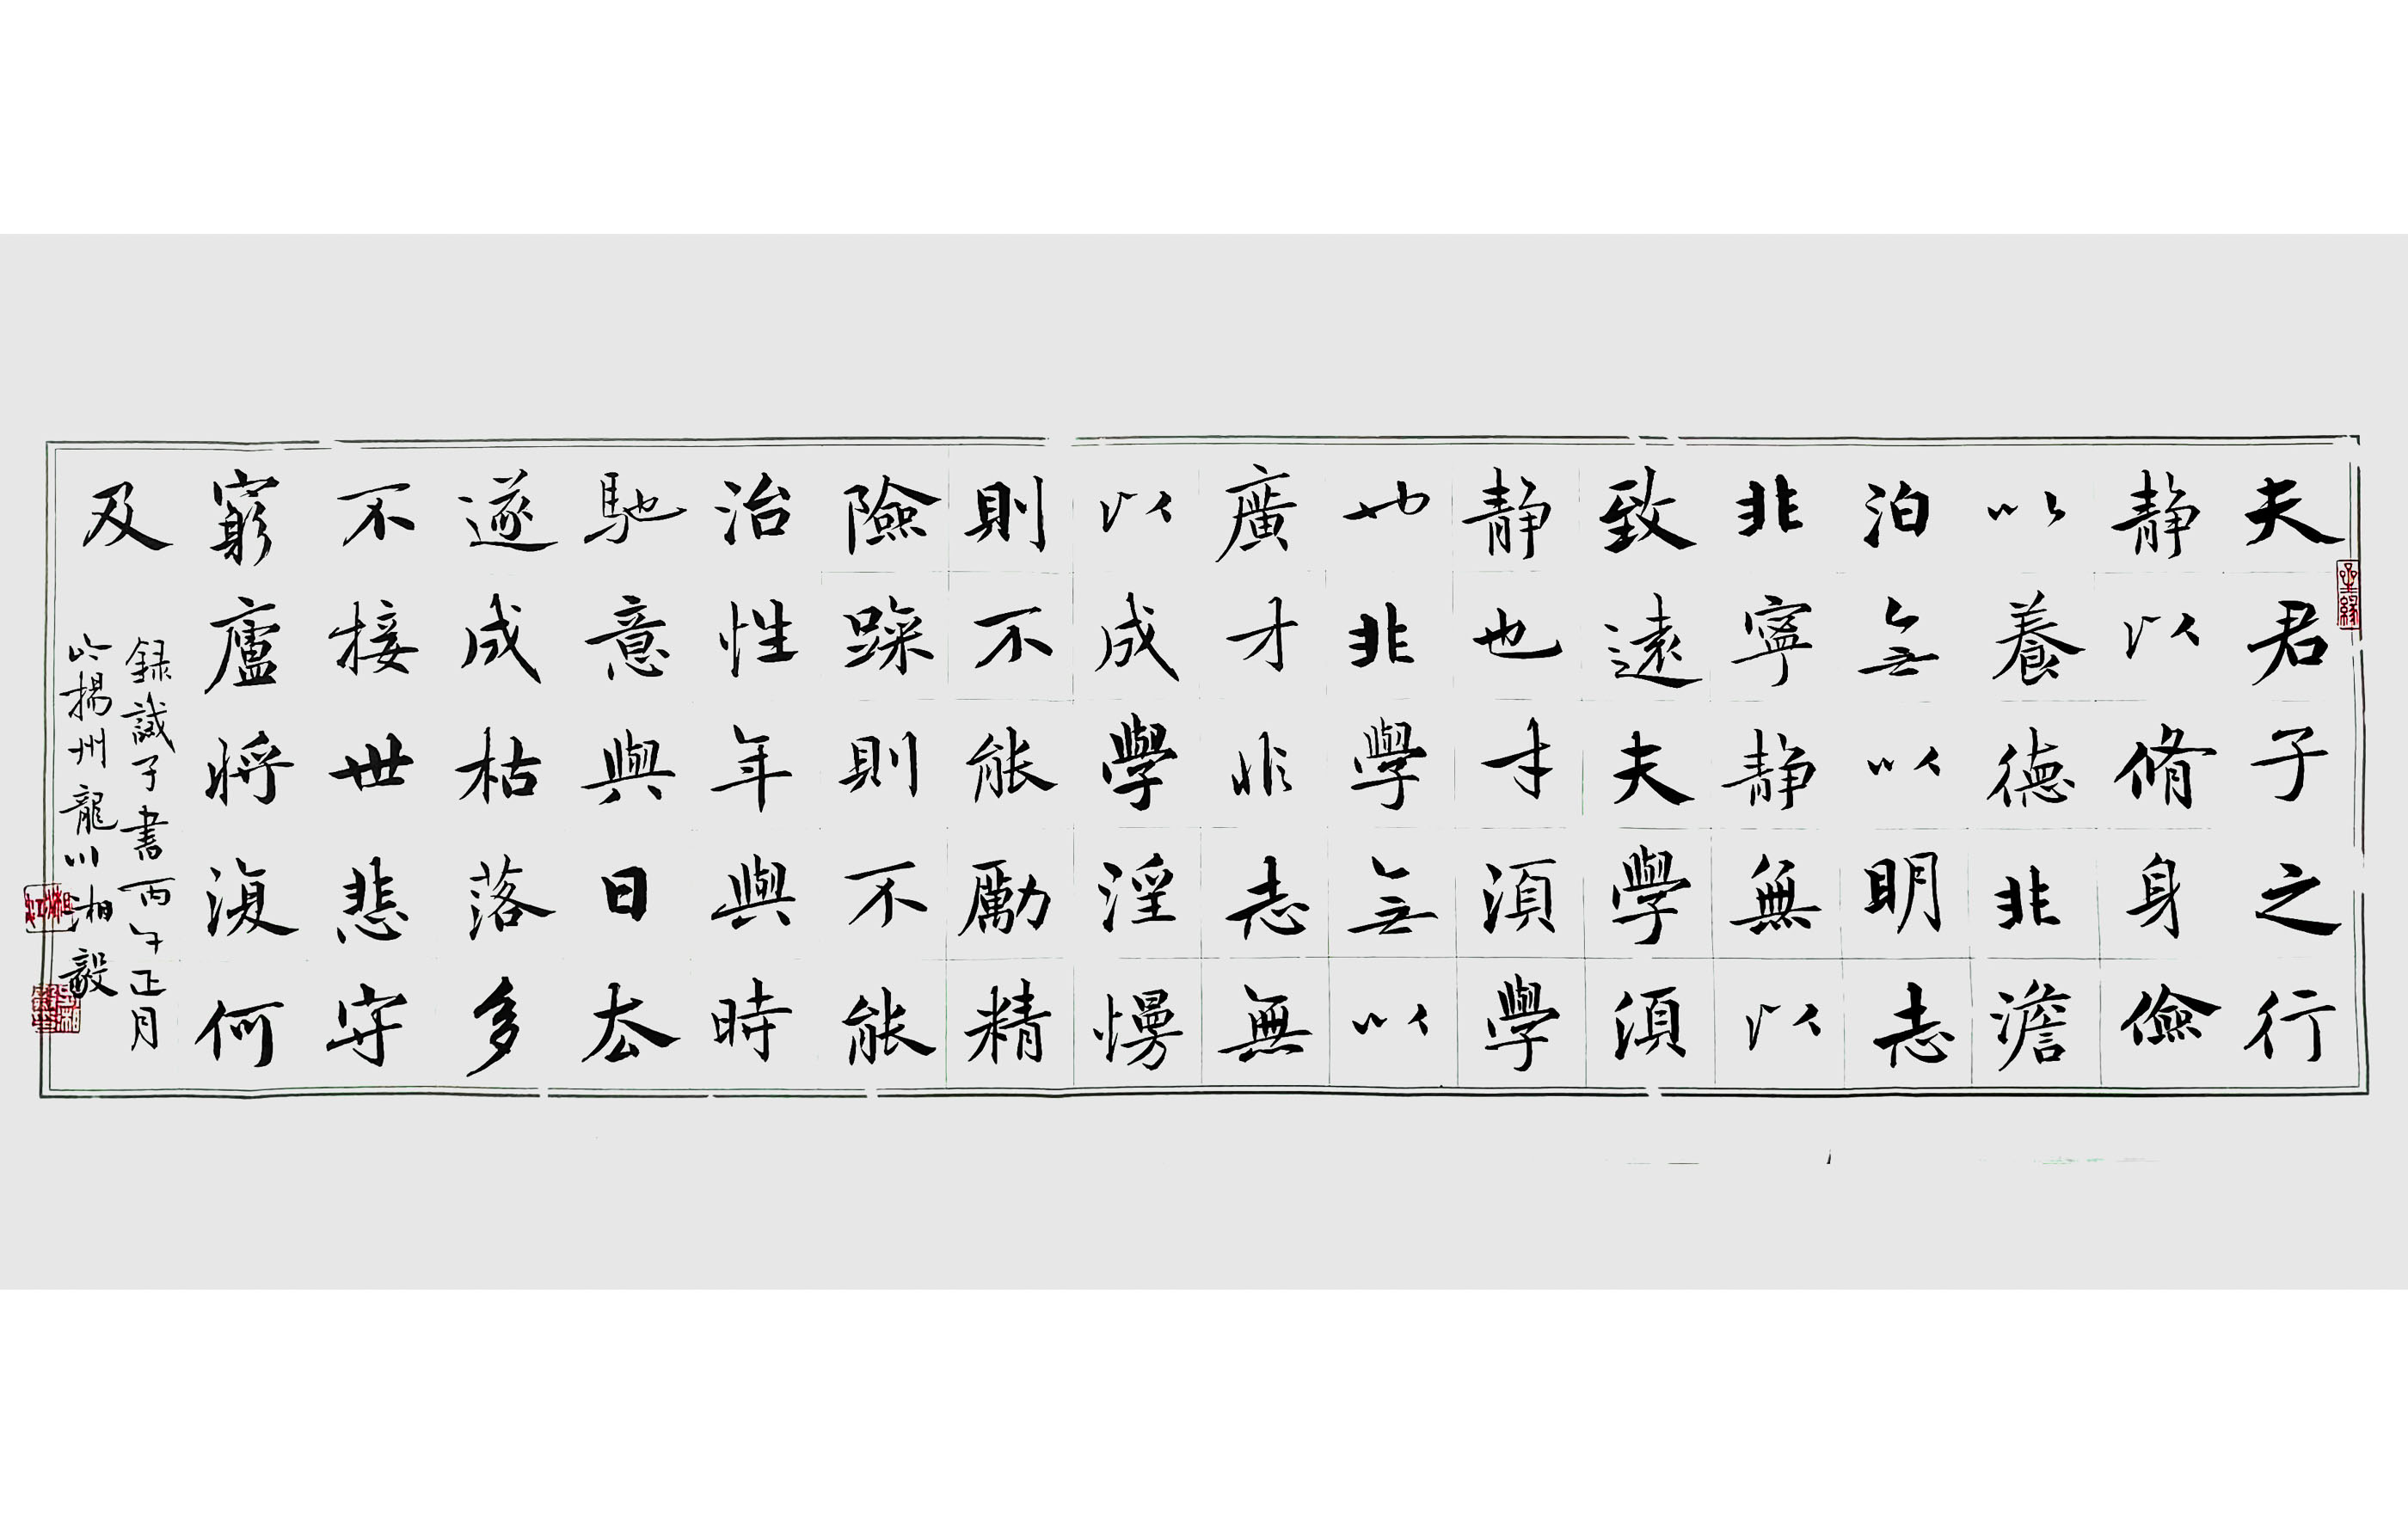 夫君子之行
静以脩身儉
以養德非澹
泊无以明志
非寧静無以
致遠夫學須
静也才須學
也非學无以
廣才非志無
以成學淫慢
則不能勵精
險躁則不能
治性年與時
馳意與日去
遂成枯落多
不接世悲守
窮廬將復何
及
録誡子書丙午正月
於揚州龍川湘毅